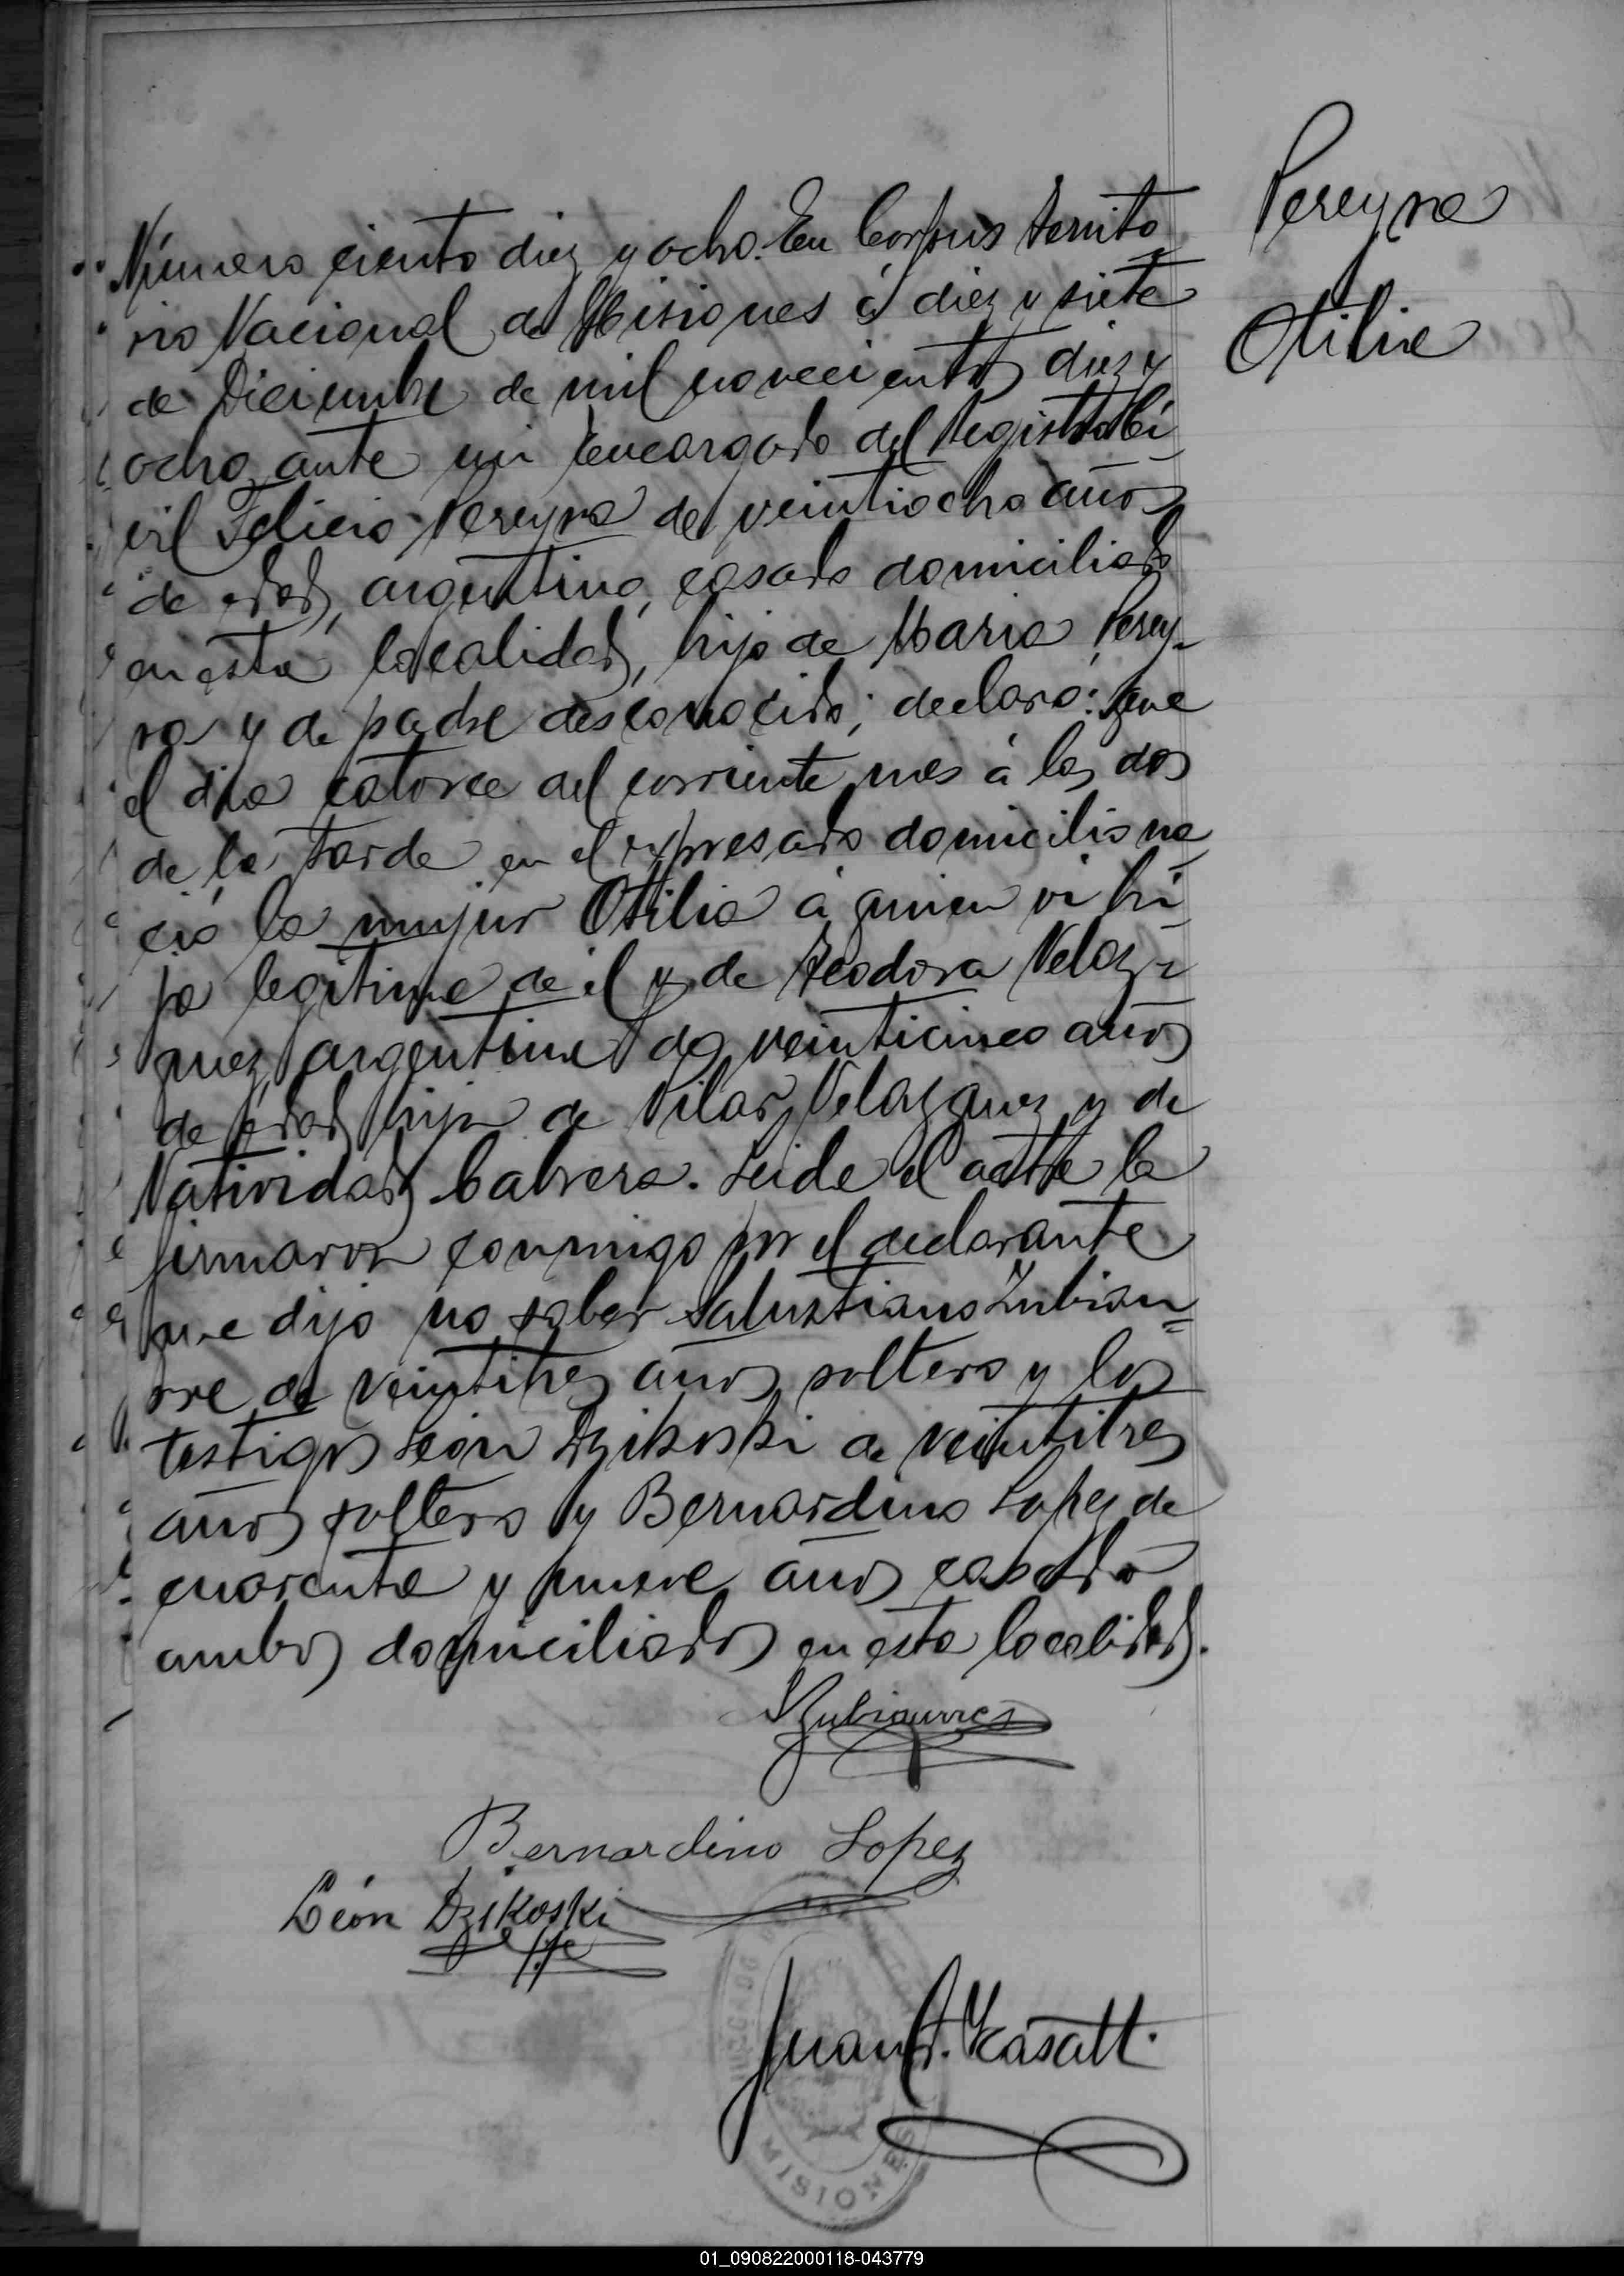 Pereyra
Otilia
Número ciento diez y ocho. En Corpus Territo
rio Nacional de Misiones á diez y siete
de Diciembre de mil novecientos diez y
ocho, ante mi Encargado del Registro Ci
vil Felicio Pereyra de veintiocho años
de edad, argentino, casado domiciliado
en esta localidad, hijo de Maria Perey-
ra y de padre desconocido; declaró: que
el dia catorce del corriente mes á las dos
de la tarde en el expresado domicilio na
ció la mujer Otilia á quien vi hi
ja legitima de él y de Teodora Velaz-
quez argentina de veinticinco años
de edad hija de Pilar Velazquez y de
Natividad Cabrera. Leida el acta la
firmaron conmigo por el declarante
que dijo no saber Salustiano Zubiau=
rre de veintitres años soltero y los
testigos León Dzikoski de veintitres
años soltero y Bernardino Lopez de
cuarenta y nueve años casado
ambos domiciliados en esta localidad.
SZubiaurre
Bernardino Lopez
León Dzikoski
Juan
MISIONES
01_090822000118-043779